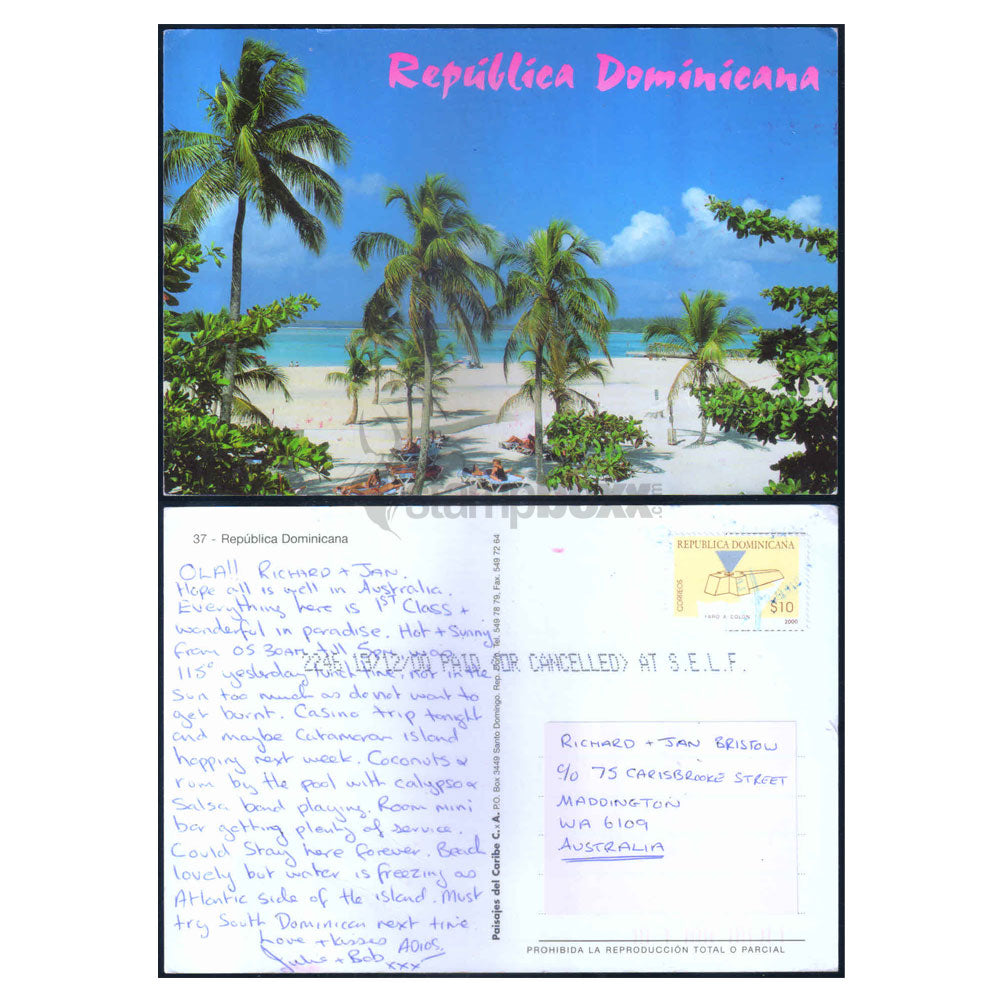 República Dominicana
stampboxx.com
37 - República Dominicana
OLA!! RICHARD + JAN.
Hope all is well in Australia.
Everything here is 1ST Class +
wonderful in paradise. Hot + Sunny
from 05 30AM till 5pm. was
115° yesterday lunch time, not in the
sun too much as do not want to
get burnt. Casino trip tonight
and maybe Catamaran island
hopping next week. Coconuts &
rum by the pool with calypso &
Salsa band playing. Room mini
bar getting plenty of service.
Could Stay here forever. Beach
lovely but water is freezing as
Atlantic side of the island. Must
try South Dominican next time.
Love + kisses ADIOS.
Julie + Bob
xxx
Paisajes del Caribe C.xA. P.O. Box 3449 Santo Domingo. Rep. Dom. Tel. 549 78 79, Fax. 549 72 64
REPUBLICA DOMINICANA
CORREOS
$10
FARO A COLON
2000
2246 18/12/00 PAID (OR CANCELLED) AT S.E.L.F.
RICHARD + JAN BRISTOW
c/o 75 CARISBROOKE STREET
MADDINGTON
WA 6109
AUSTRALIA
PROHIBIDA LA REPRODUCCIÓN TOTAL O PARCIAL